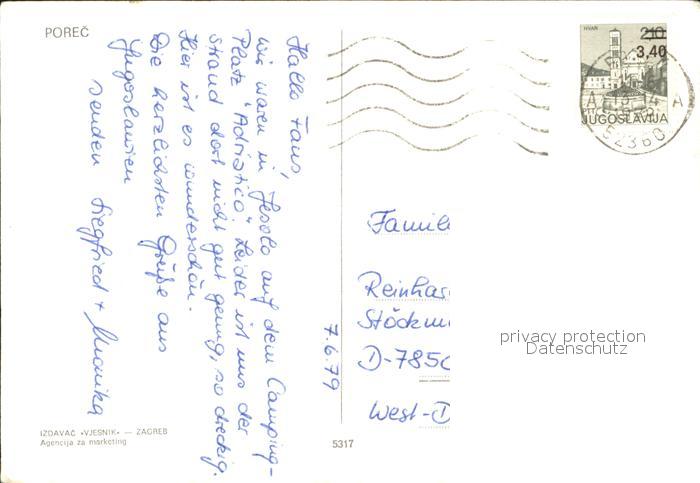 POREČ
Hallo Fans,
wir waren in Jesolo auf dem Camping-
Platz "Adriatico". Leider ist uns der
Strand dort nicht gut genug, so dreckig.
Hier ist es wunderschön.
Die herzlichsten Grüße aus
Jugoslawien
senden Siegfried + Monika
7.6.79
HVAR
210
3,40
JUGOSLAVIJA
52360
Famil
Reinhar
Stöckm
D-785
West-D
privacy protection
Datenschutz
IZDAVAČ »VJESNIK« — ZAGREB
Agencija za marketing
5317